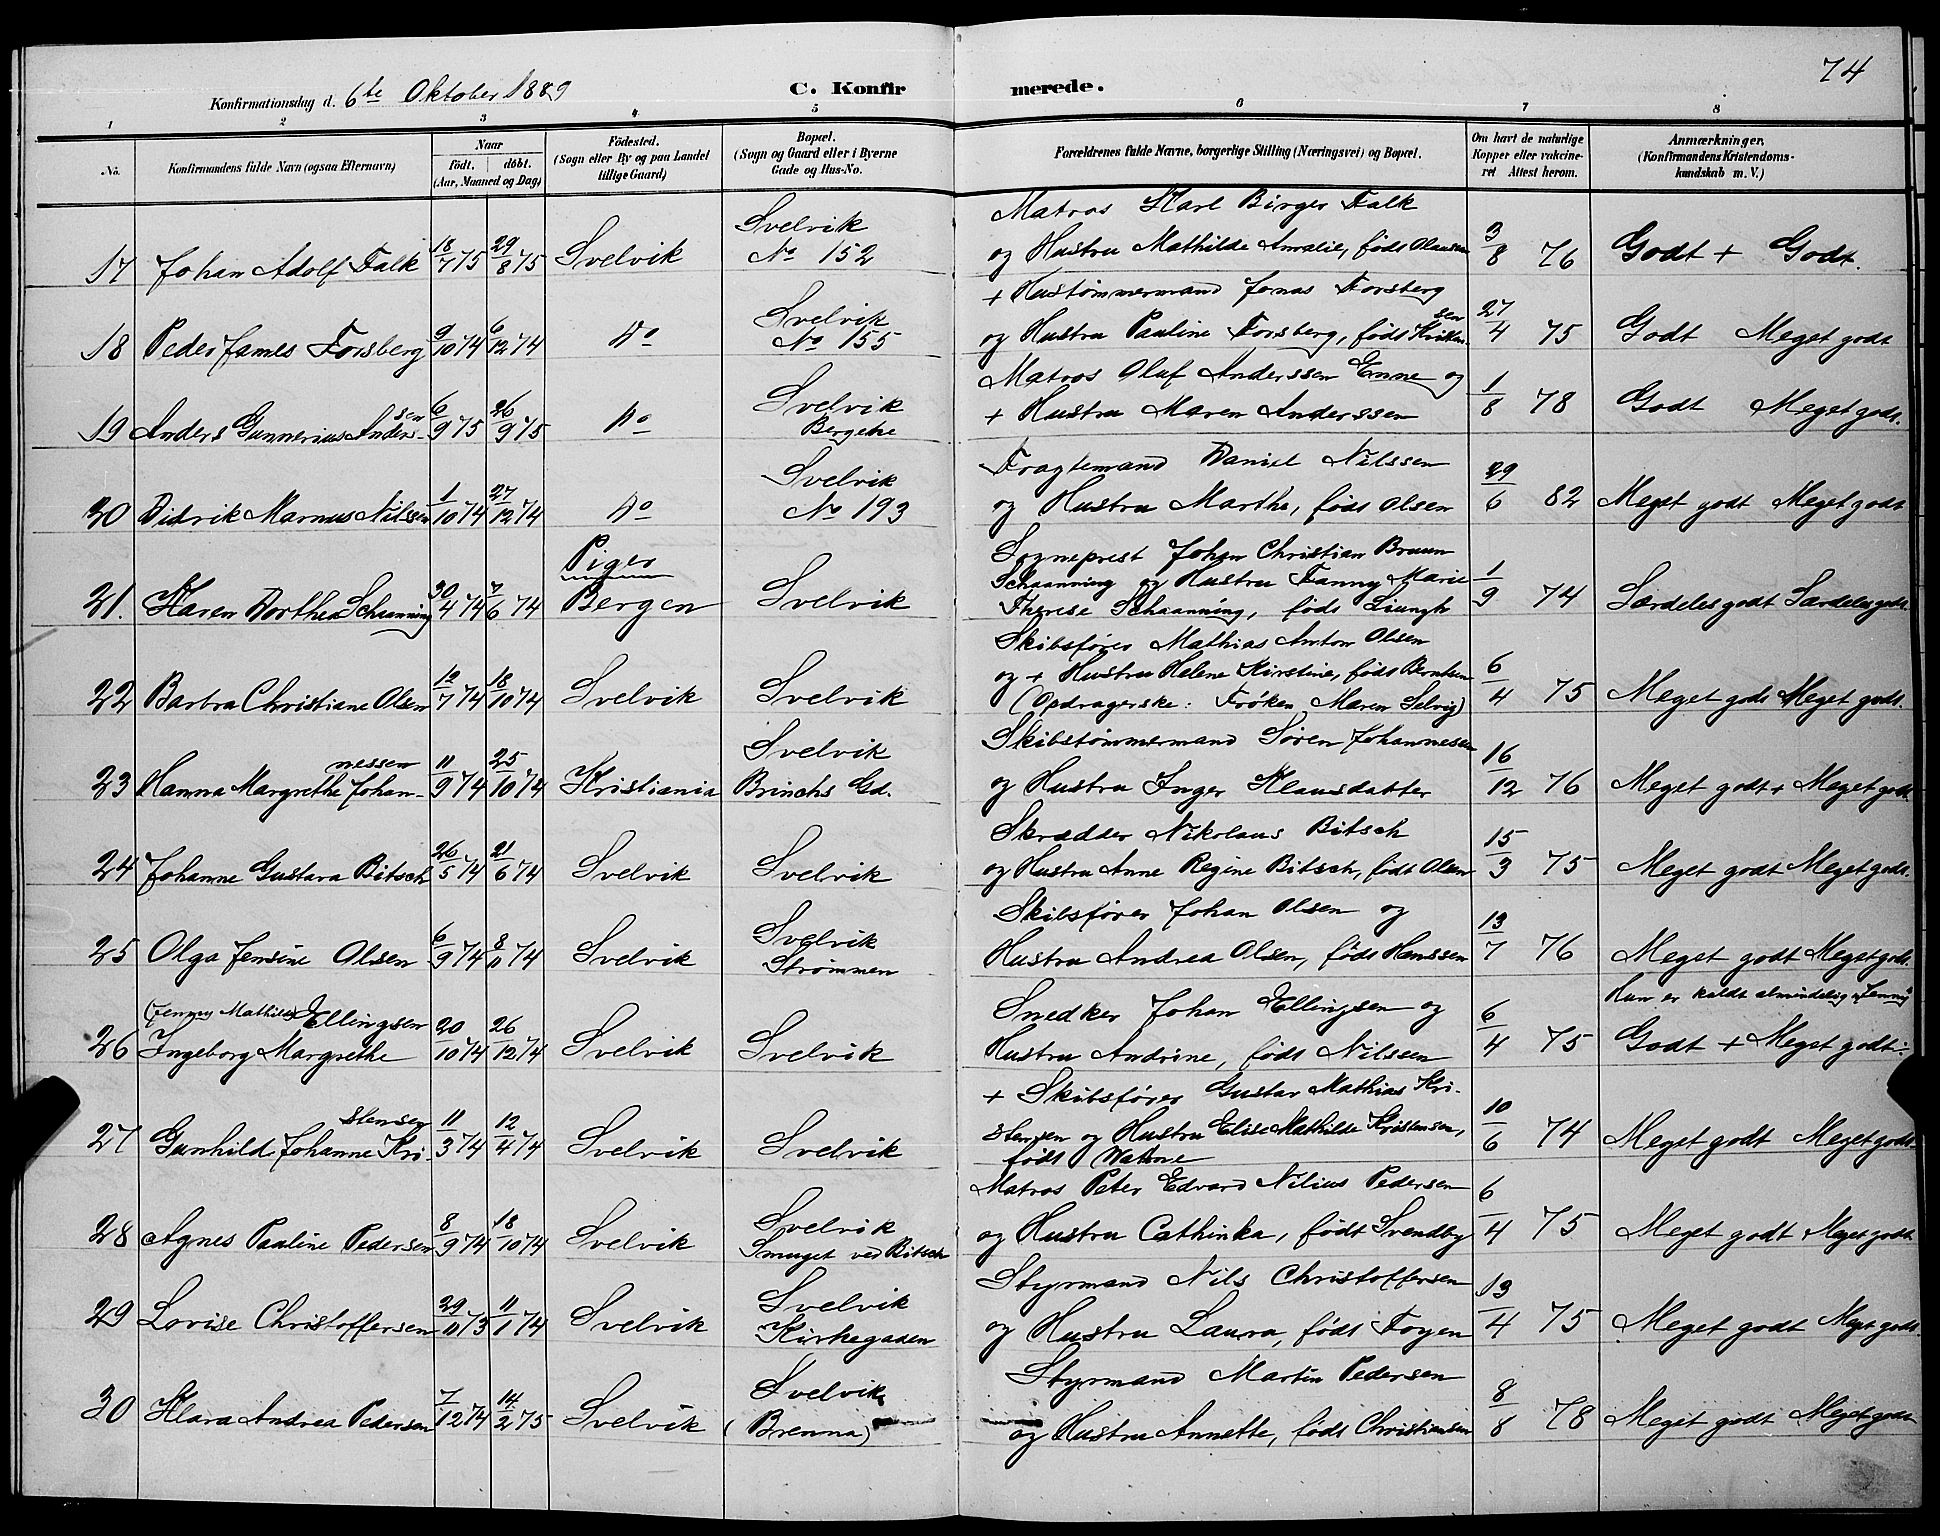 74
Konfirmationsdag d. 6te Oktober 1889 C. Konfirmerede.
1 2 3 4 5 6 7 8
No. Konfirmandens fulde Navn (ogsaa Efternavn) Naar Født. døbt. (Aar, Maaned og Dag) Fødested. (Sogn eller By og paa Landet tillige Gaard) Bopæl. (Sogn og Gaard eller i Byerne Gade og Hus-No. Forældrenes fulde Navne, borgerlige Stilling (Næringsvei) og Bopæl. Om havt de naturlige Kopper eller vakcineret Attest herom. Anmærkninger. (Konfirmandens Kristendomskundskab m. V.)
Svelvik Matros Karl Birger Falk
17 Johan Adolf Falk 18/7 75 29/8 75 Svelvik No 152 og Hustru Mathilde Amalie, født Olausen 3/8 76 Godt + Godt.
Svelvik + Hustømmermand Jonas Forsberg
18 Peder James Forsberg 9/10 74 6/12 74 Do No 155 og Hustru Pauline Forsberg, født Kristensen 27/4 75 Godt Meget godt
Svelvik Matros Oluf Anderssen Enne og
19 Anders Gunnerius Anderssen 6/9 75 26/9 75 Do + Hustru Maren Anderssen 1/8 78 Godt Meget godt.
Svelvik Fragtemand Daniel Nilssen
20 Didrik Marnus Nilssen 1/10 74 27/12 74 Do No 193 og Hustru Marthe, født Olsen 29/6 82 Meget godt Meget godt
Piger Sogneprest Johan Christian Bruun
21. Karen Dorthea Schaanning 30/4 74 7/6 74 Bergen Svelvik Schaanning og Hustru Fanny Marie 1/9 74 Særdeles godt Særdeles godt.
Therese Schaanning, født Liungh
Skibsfører Mathias Anton Olsen
22 Barbra Christiane Olsen 12/7 74 18/10 74 Svelvik Svelvik og + Hustru Helene Kirstine, født Berntsen 6/4 75 Meget godt Meget godt.
(Opdragerske: Frøken Maren Selvig)
Svelvik Skibstømmermand Søren Johannesen
23 Hanna Margrethe Johannessen 11/9 74 25/10 74 Kristiania Brinchs Gd. og Hustru Inger Klausdatter 16/12 76 Meget godt + Meget godt.
Skrædder Nikolaus Bitsch
24 Johanne Gustava Bitsch 26/5 74 21/6 74 Svelvik Svelvik og Hustru Anne Regine Bitsch, født Olsen 15/3 75 Meget godt Meget godt.
Svelvik Skibsfører Johan Olsen og
25 Olga Jensine Olsen 6/9 74 8/11 74 Svelvik Strømmen Hustru Andrea Olsen, født Hanssen 13/7 76 Meget godt Meget godt.
(Jenny Mathilde) Ellingsen Snedker Johan Ellingsen og Hun er kaldt almindelig "Jenny"
26 Ingeborg Margrethe 20/10 74 26/12 74 Svelvik Svelvik Hustru Andrine, født Nilssen 6/4 75 Godt + Meget godt.
+ Skibsfører Gustav Mathias Kri-
27 Gunhild Johanne Kristensen 11/3 74 12/4 74 Svelvik Svelvik stensen og Hustru Elise Mathilde Kristensen, 10/6 74 Meget godt Meget godt
født Watne
Svelvik Matros Peter Edvard Nilius Pedersen
28 Agnes Pauline Pedersen 8/9 74 18/10 74 Svelvik Smuget ved Bitsch og Hustru Cathinka, født Svendby 6/4 75 Meget godt Meget godt
Svelvik Styrmand Nils Christoffersen
29 Lovise Christoffersen 29/11 73 11/1 74 Svelvik Kirkegaden og Hustru Laura, født Foyen 13/4 75 Meget godt Meget godt.
Svelvik Styrmand Martin Pedersen
30 Klara Andrea Pedersen 7/12 74 14/2 75 Svelvik (Brenna) og Hustru Annette, født Christiansen 8/8 78 Meget godt Meget godt